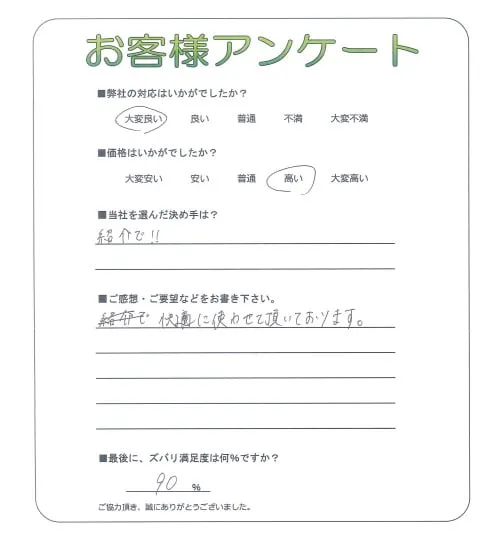 お客様アンケート
■弊社の対応はいかがでしたか？
大変良い 良い 普通 不満 大変不満
■価格はいかがでしたか？
大変安い 安い 普通 高い 大変高い
■当社を選んだ決め手は？
紹介で!!
■ご感想・ご要望などをお書き下さい。
紹介で 快適に使わせて頂いております。
■最後に、ズバリ満足度は何%ですか？
90 %
ご協力頂き、誠にありがとうございました。